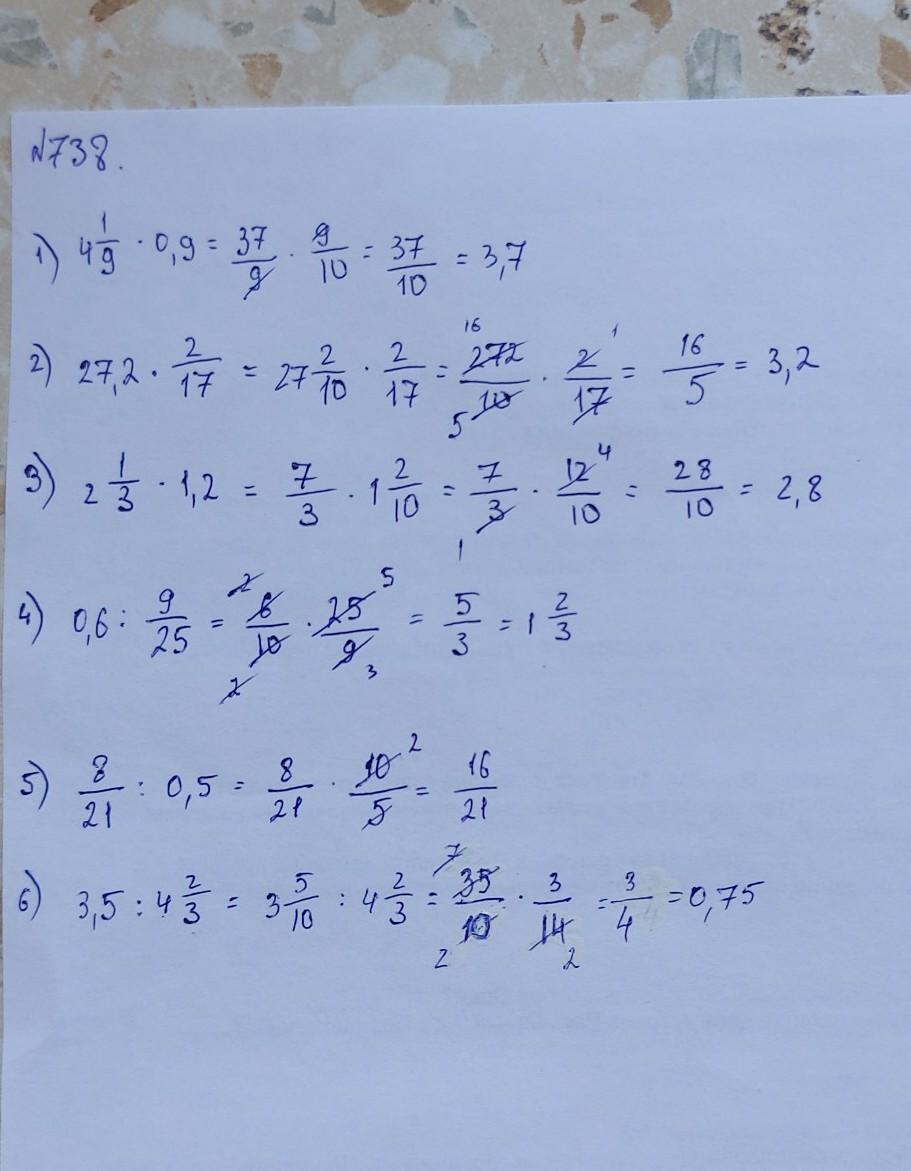 №738.
1) 4 1/9 · 0,9 = 37/9 · 9/10 = 37/10 = 3,7
2) 27,2 · 2/17 = 27 2/10 · 2/17 = 16 272/10 5 · 2/17 1 = 16/5 = 3,2
3) 2 1/3 · 1,2 = 7/3 · 1 2/10 = 7/3 1 · 12/10 4 = 28/10 = 2,8
4) 0,6 : 9/25 = 2 6/10 2 · 25/9 5 3 = 5/3 = 1 2/3
5) 8/21 : 0,5 = 8/21 · 10/5 2 = 16/21
6) 3,5 : 4 2/3 = 3 5/10 : 4 2/3 = 7 35/10 2 · 3/14 2 = 3/4 = 0,75